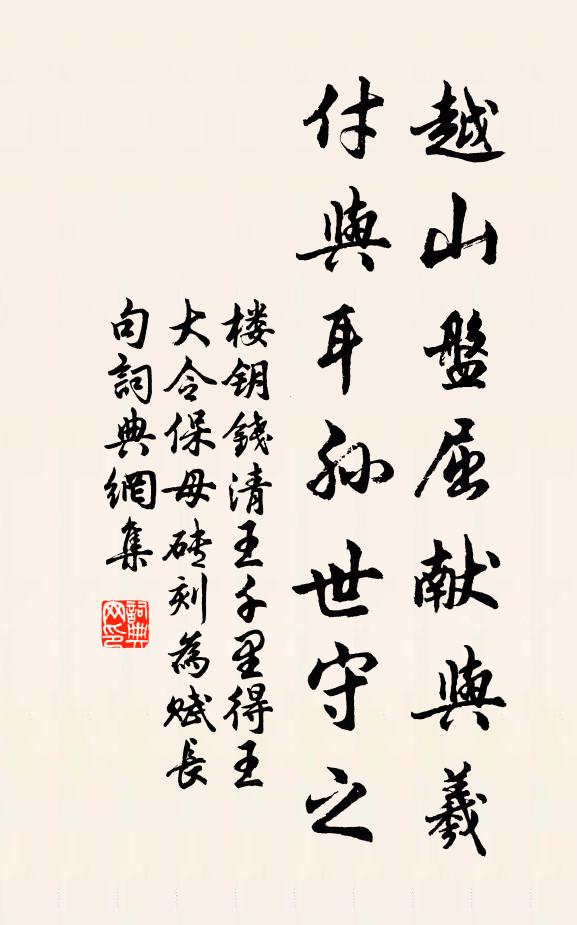 越山盤屈献與羲
付與耳孙世守之
楼钥錢清王千里得王
大令保母磚刻為赋長
句詞典網集
詞典
网印